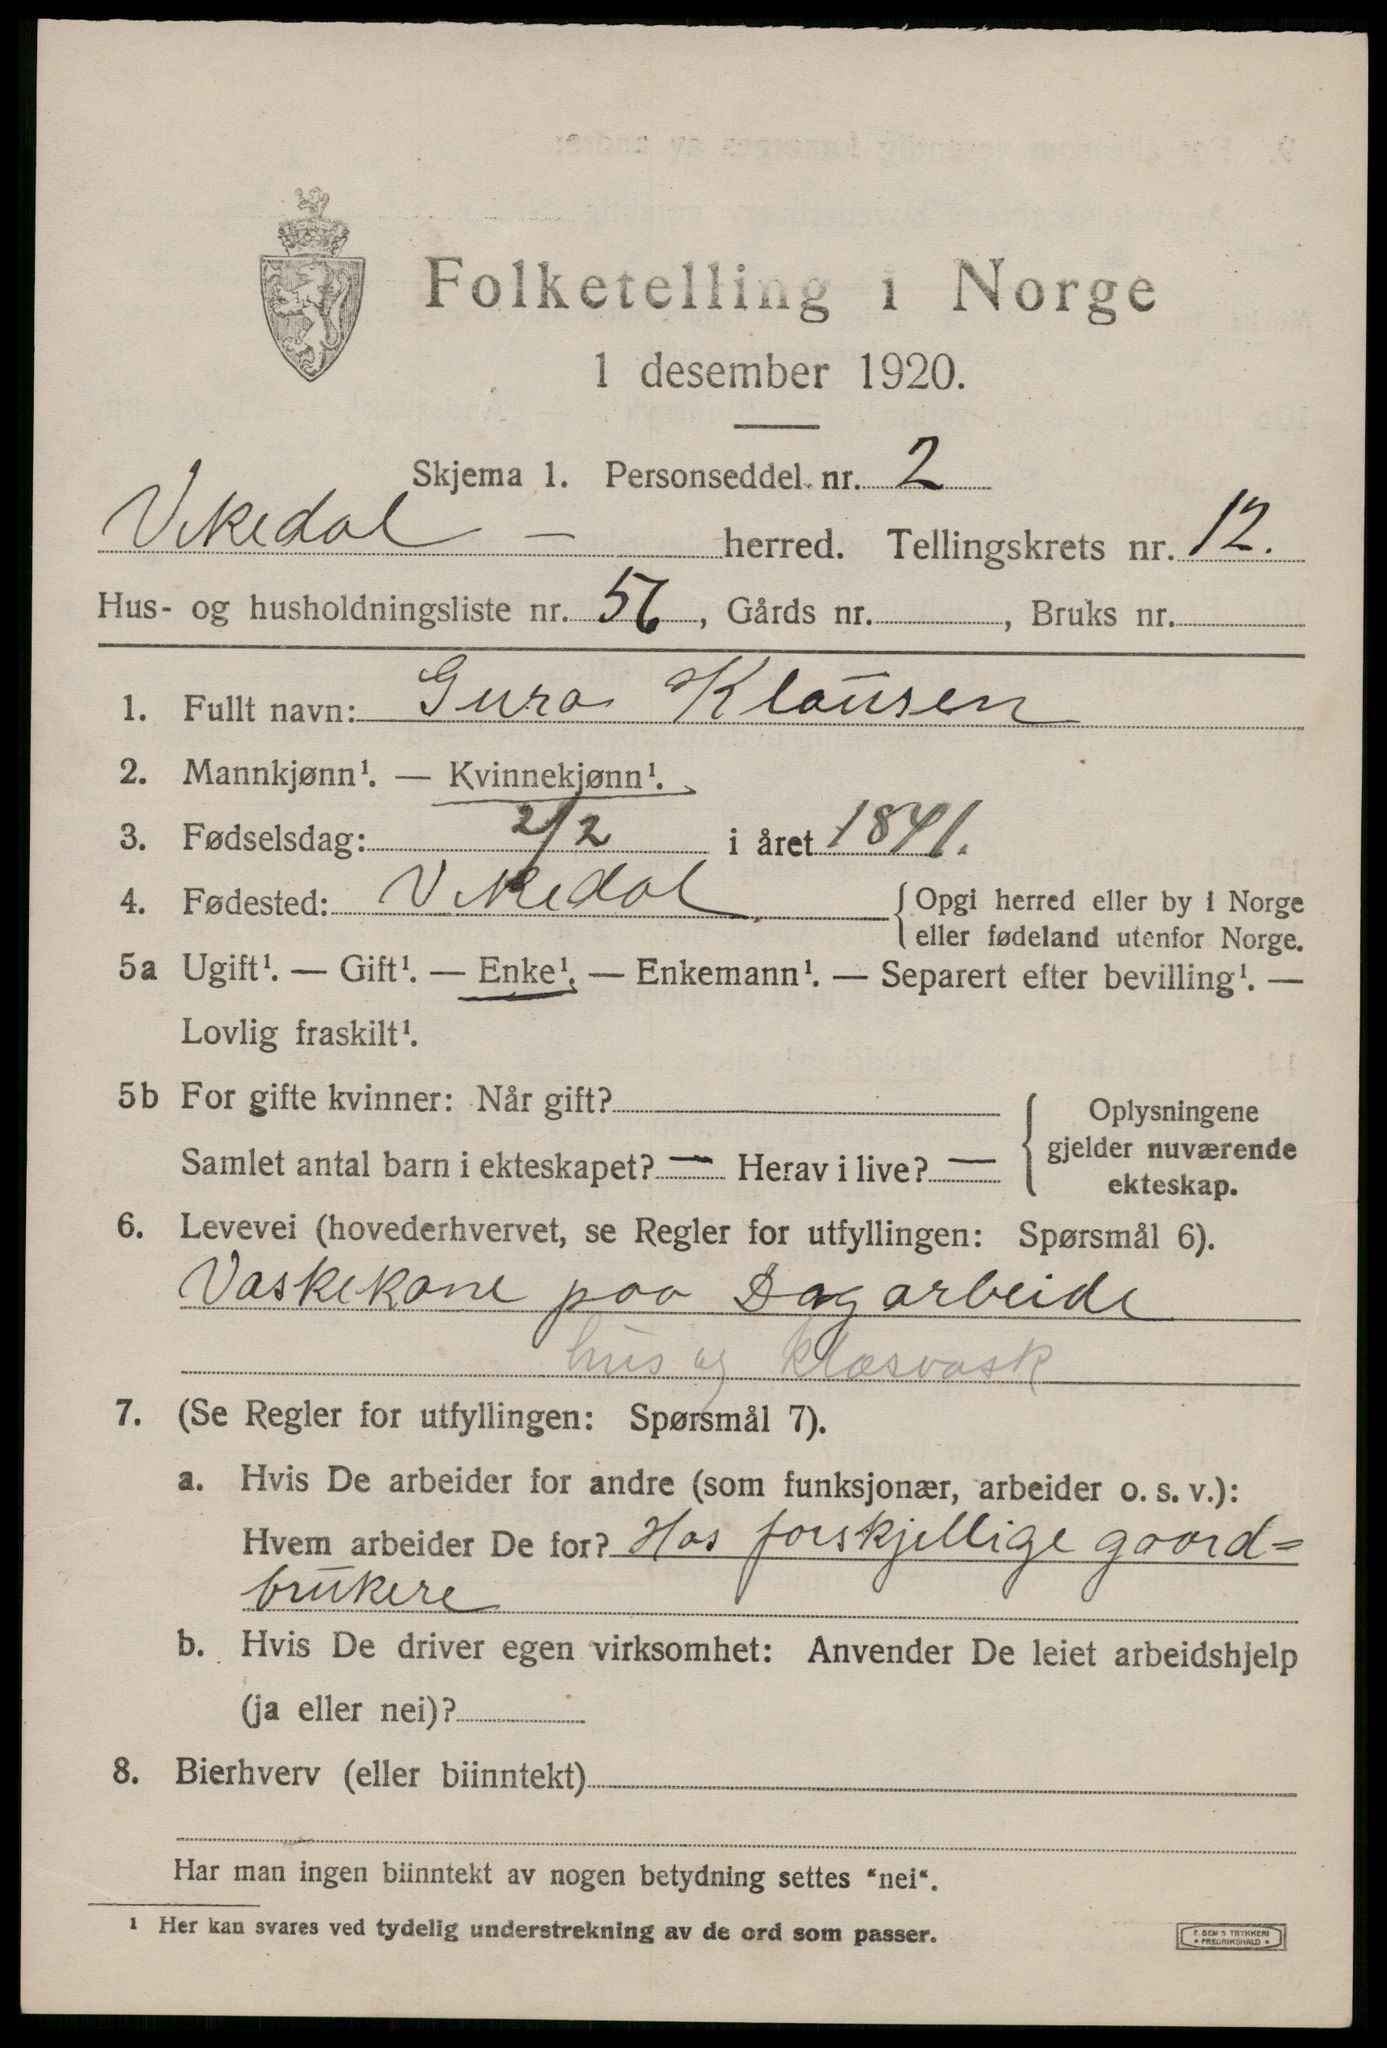 Folketelling i Norge
1 desember 1920.
Skjema 1. Personseddel nr. 2
Vikedal — herred. Tellingskrets nr. 12.
Hus- og husholdningsliste nr. 56, Gårds nr. , Bruks nr.
1. Fullt navn: Guro Klausen
2. Mannkjønn¹. — Kvinnekjønn¹.
3. Fødselsdag: 2/2 i året 1841.
4. Fødested: Vikedal {Opgi herred eller by i Norge
eller fødeland utenfor Norge.
5a Ugift¹. — Gift¹. — Enke¹. — Enkemann¹. — Separert efter bevilling¹. —
Lovlig fraskilt¹.
5b For gifte kvinner: Når gift?
Samlet antal barn i ekteskapet? — Herav i live? —
Oplysningene
gjelder nuværende
ekteskap.
6. Levevei (hovederhvervet, se Regler for utfyllingen: Spørsmål 6).
Vaskekone paa Dagarbeide
hus og klæsvask
7. (Se Regler for utfyllingen: Spørsmål 7).
a. Hvis De arbeider for andre (som funksjonær, arbeider o. s. v.):
Hvem arbeider De for? Hos forskjellige gaard=
brukere
b. Hvis De driver egen virksomhet: Anvender De leiet arbeidshjelp
(ja eller nei)?
8. Bierhverv (eller biinntekt)
Har man ingen biinntekt av nogen betydning settes "nei".
¹ Her kan svares ved tydelig understrekning av de ord som passer.
E. SEM'S TRYKKERI
* FREDRIKSHALD *